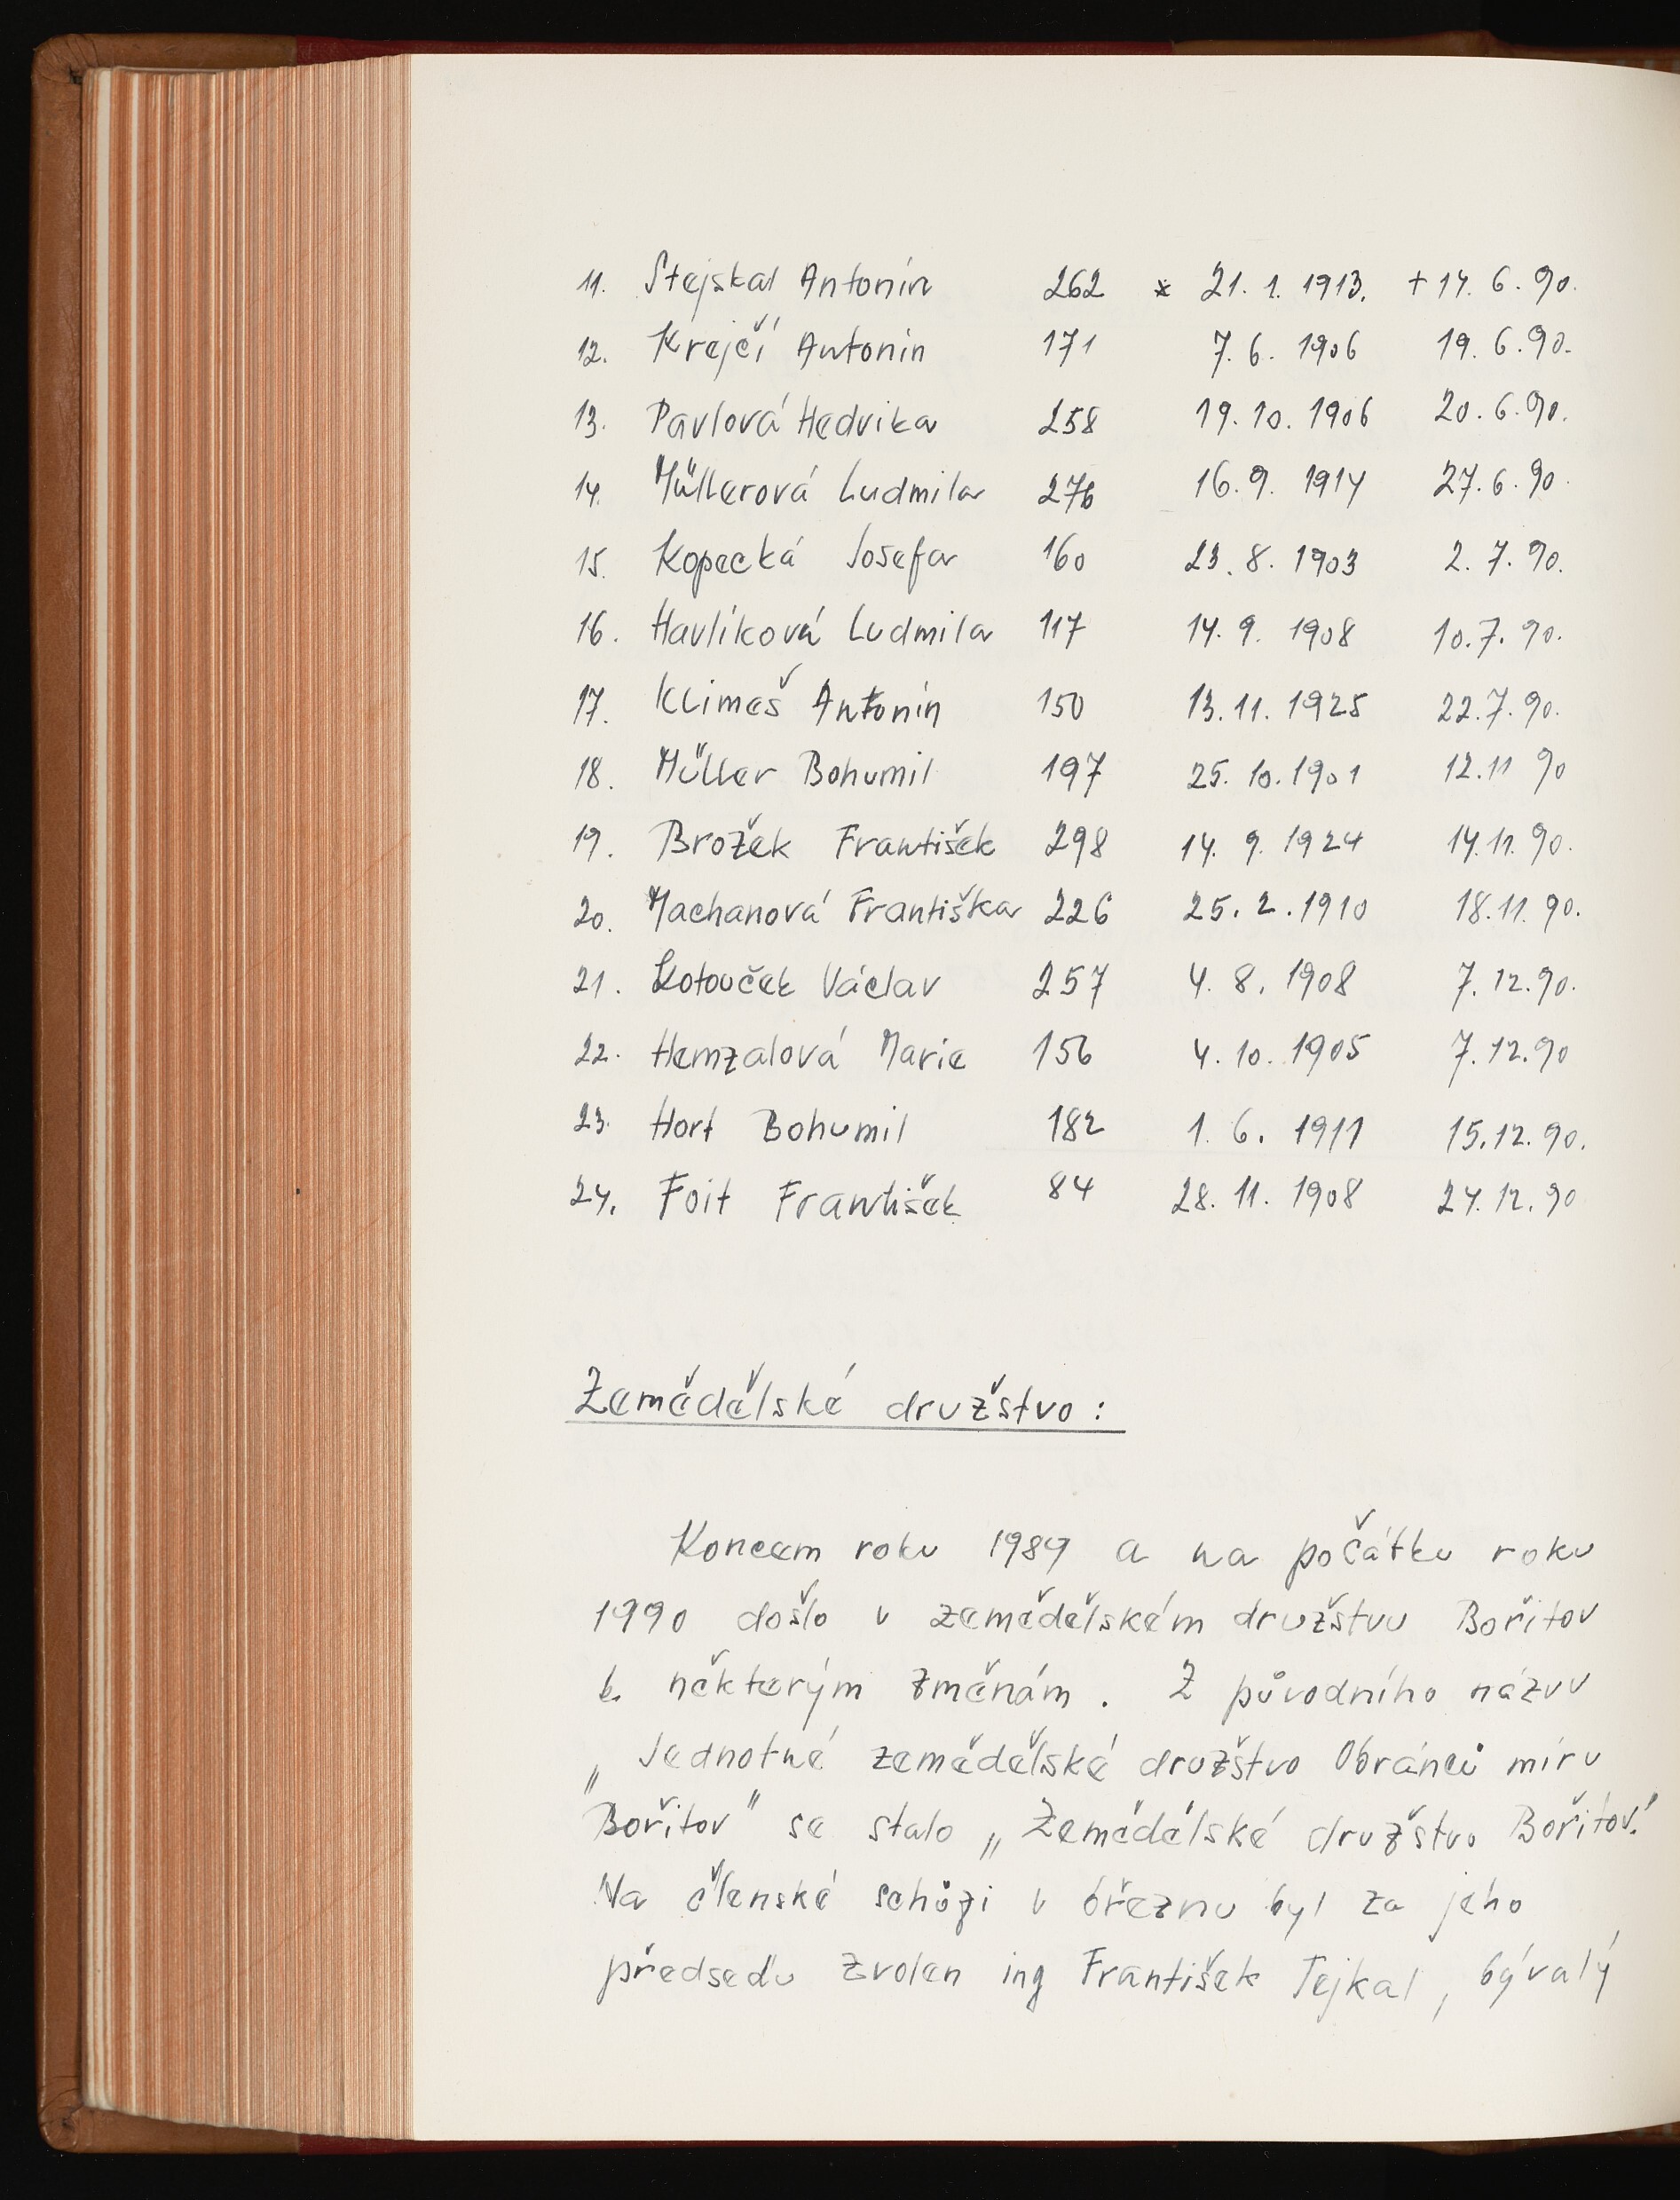 11. Stejskal Antonín 262 * 21. 1. 1913. + 14. 6. 90.
12. Krejčí Antonín 171 7. 6. 1906 19. 6. 90.
13. Pavlová Hedvika 258 19. 10. 1906 20. 6. 90.
14. Müllerová Ludmila 276 16. 9. 1914 27. 6. 90.
15. Kopecká Josefa 160 23. 8. 1903 2. 7. 90.
16. Havlíková Ludmila 117 14. 9. 1908 10. 7. 90.
17. Klimeš Antonín 150 13. 11. 1925 22. 7. 90.
18. Müller Bohumil 197 25. 10. 1901 12. 11 90
19. Brožek František 298 14. 9. 1924 14. 11. 90.
20. Machanová Františka 226 25. 2. 1910 18. 11. 90.
21. Kotouček Václav 257 4. 8. 1908 7. 12. 90.
22. Hemzalová Marie 156 4. 10. 1905 7. 12. 90
23. Hort Bohumil 182 1. 6. 1911 15. 12. 90.
24. Foit František 84 28. 11. 1908 24. 12. 90
Zemědělské družstvo :
Koncem roku 1989 a na počátku roku
1990 došlo v zemědělském družstvu Bořitov
k některým změnám. Z původního názvu
„Jednotné zemědělské družstvo Obránců míru
Bořitov" se stalo „Zemědělské družstvo Bořitov."
Na členské schůzi v březnu byl za jeho
předsedu zvolen ing František Tejkal, bývalý